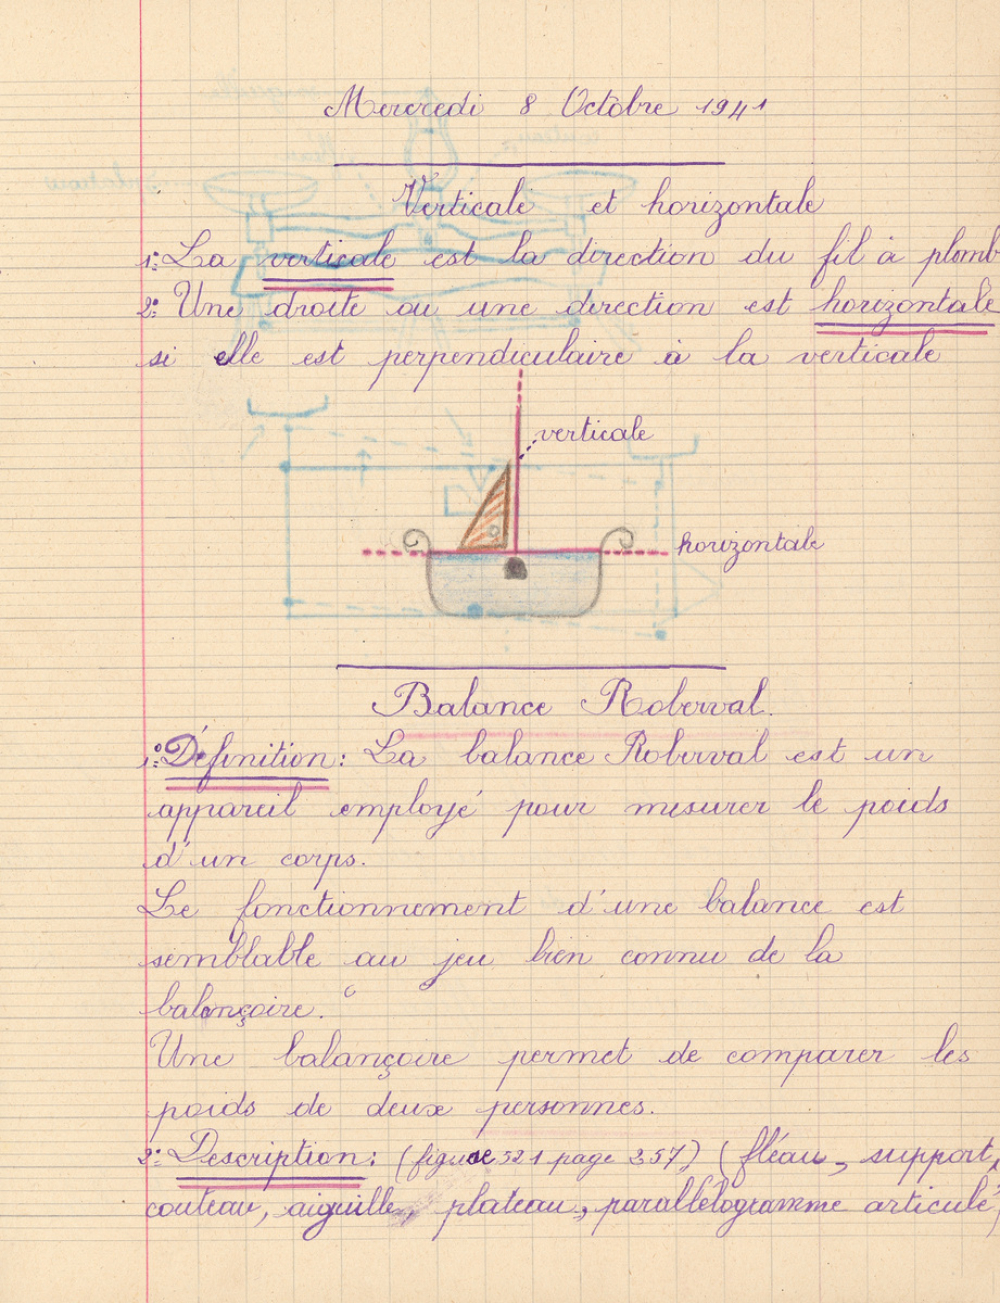 Mercredi 8 Octobre 1941
Verticale et horizontale
1: La verticale est la direction du fil à plomb
2: Une droite ou une direction est horizontale
si elle est perpendiculaire à la verticale
verticale
horizontale
Balance Roberval.
1: Définition: La balance Roberval est un
appareil employé pour mesurer le poids
d'un corps.
Le fonctionnement d'une balance est
semblable au jeu bien connu de la
balançoire.
Une balançoire permet de comparer les
poids de deux personnes.
2: Description: (figure 521 page 257) (fléau, support,
couteau, aiguille, plateau, parallélogramme articulé,